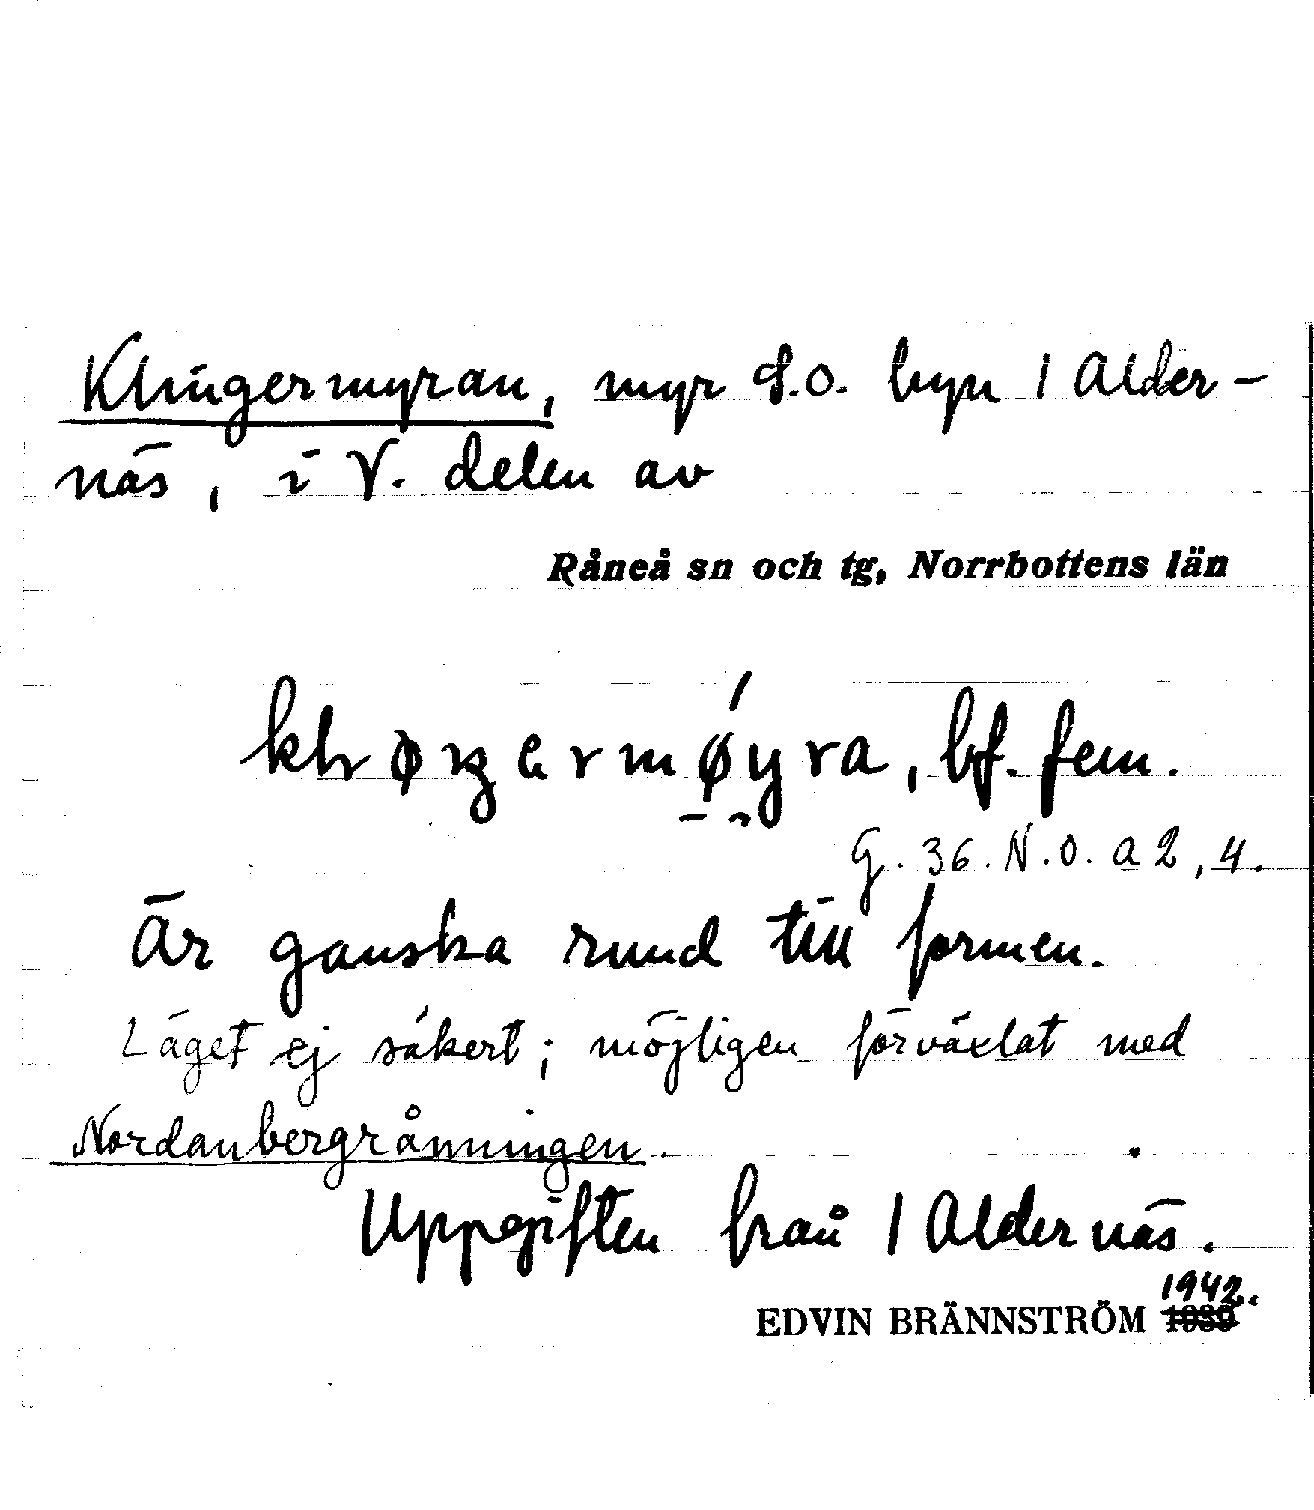 Klingermyran, myr S.O. byn 1 Alder-
näs, i V. delen av
Råneå sn och tg, Norrbottens län
bf. fem.
G. 36. N.O. a 2, 4.
Är ganska rund till formen.
Läget ej säkert; möjligen förväxlat med
Nordanbergråningen.
Uppgiften från 1 Aldernäs.
1942.
EDVIN BRÄNNSTRÖM 1939